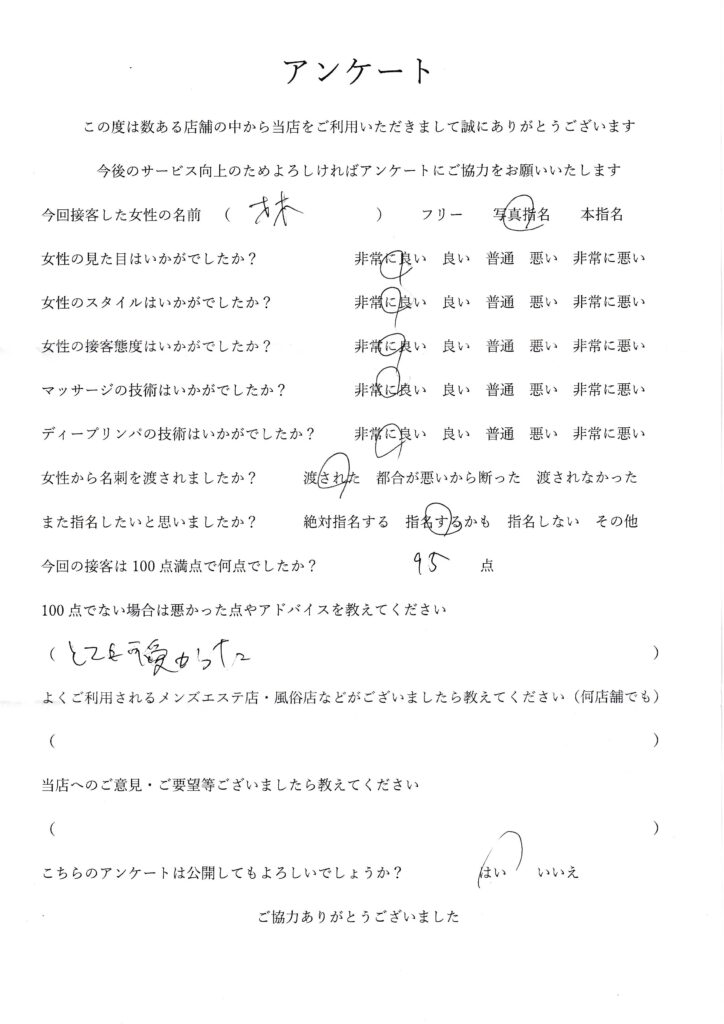 アンケート
この度は数ある店舗の中から当店をご利用いただきまして誠にありがとうございます
今後のサービス向上のためよろしければアンケートにご協力をお願いいたします
今回接客した女性の名前 ( ) フリー 写真指名 本指名
女性の見た目はいかがでしたか? 非常に良い 良い 普通 悪い 非常に悪い
女性のスタイルはいかがでしたか? 非常に良い 良い 普通 悪い 非常に悪い
女性の接客態度はいかがでしたか? 非常に良い 良い 普通 悪い 非常に悪い
マッサージの技術はいかがでしたか? 非常に良い 良い 普通 悪い 非常に悪い
ディープリンパの技術はいかがでしたか? 非常に良い 良い 普通 悪い 非常に悪い
女性から名刺を渡されましたか? 渡された 都合が悪いから断った 渡されなかった
また指名したいと思いましたか? 絶対指名する 指名するかも 指名しない その他
今回の接客は100点満点で何点でしたか? 95 点
100点でない場合は悪かった点やアドバイスを教えてください
(とても可愛かった )
よくご利用されるメンズエステ店・風俗店などがございましたら教えてください(何店舗でも)
( )
当店へのご意見・ご要望等ございましたら教えてください
( )
こちらのアンケートは公開してもよろしいでしょうか? はい いいえ
ご協力ありがとうございました